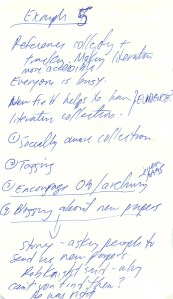 Example 5
Reference collecting +
tracking. Making literature
more accessible
Everyone is busy.
Need to it helps to have EVIDENCE
literature collections.
① Socially aware collection
② Tagging
③ Encourage OA/archiving
④ Blogging about new papers
Story - asked people to
send me new papers
Rob Knight said - why
can't you find them?
he was right